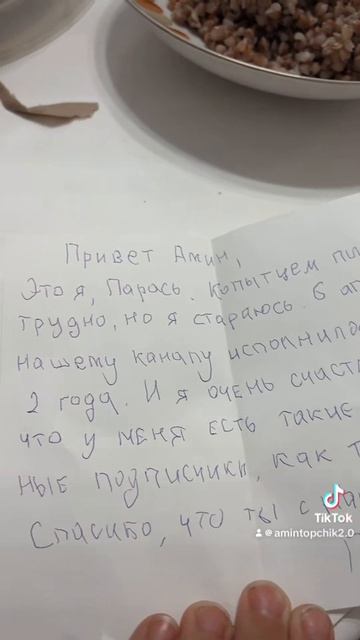 Привет Амин,
Это я, Парась. Копытцем
трудно, но я стараюсь. 6
нашему каналу
2 года. И я очень
что у меня есть такие
ные подписчики, как
Спасибо, что ты с
TikTok
@amintopchik2.0